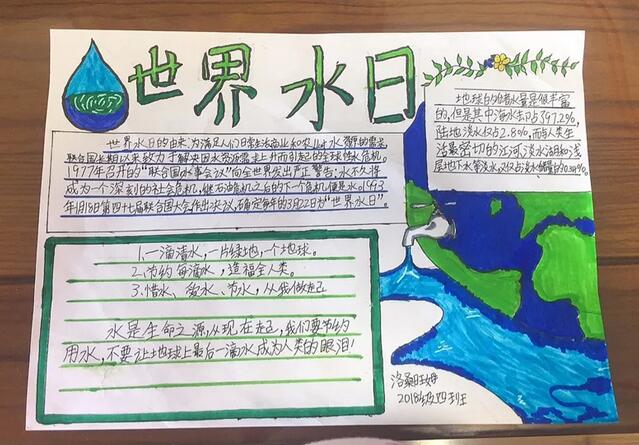 世界水日
世界水日的由来为满足人们日常生活商业和农业对水资源的需求,
联合国长期以来致力于解决因水资源需求上升而引起的全球性水危机。
1977年召开的“联合国水事会议”向全世界发出严正警告:水不久将
成为一个深刻的社会危机,继石油危机之后的下个危机便是水。1993
年1月18日第四十七届联合国大会作出决议,确定每年的3月22日为“世界水日”。
地球的储水量是很丰富
的,但是其中海水却占了97.2%,
陆地淡水仅占2.8%,而与人类生
活最密切的江河、淡水湖和浅
层地下水等淡水,又仅占淡水储量的0.34%。
1.一滴清水,一片绿地,一个地球。
2.节约每滴水,造福全人类。
3.惜水、爱水、节水,从我做起
水是生命之源,从现在起,我们要节约
用水,不要让地球上最后一滴水成为人类的眼泪!
洛桑旺姆
2018级四班